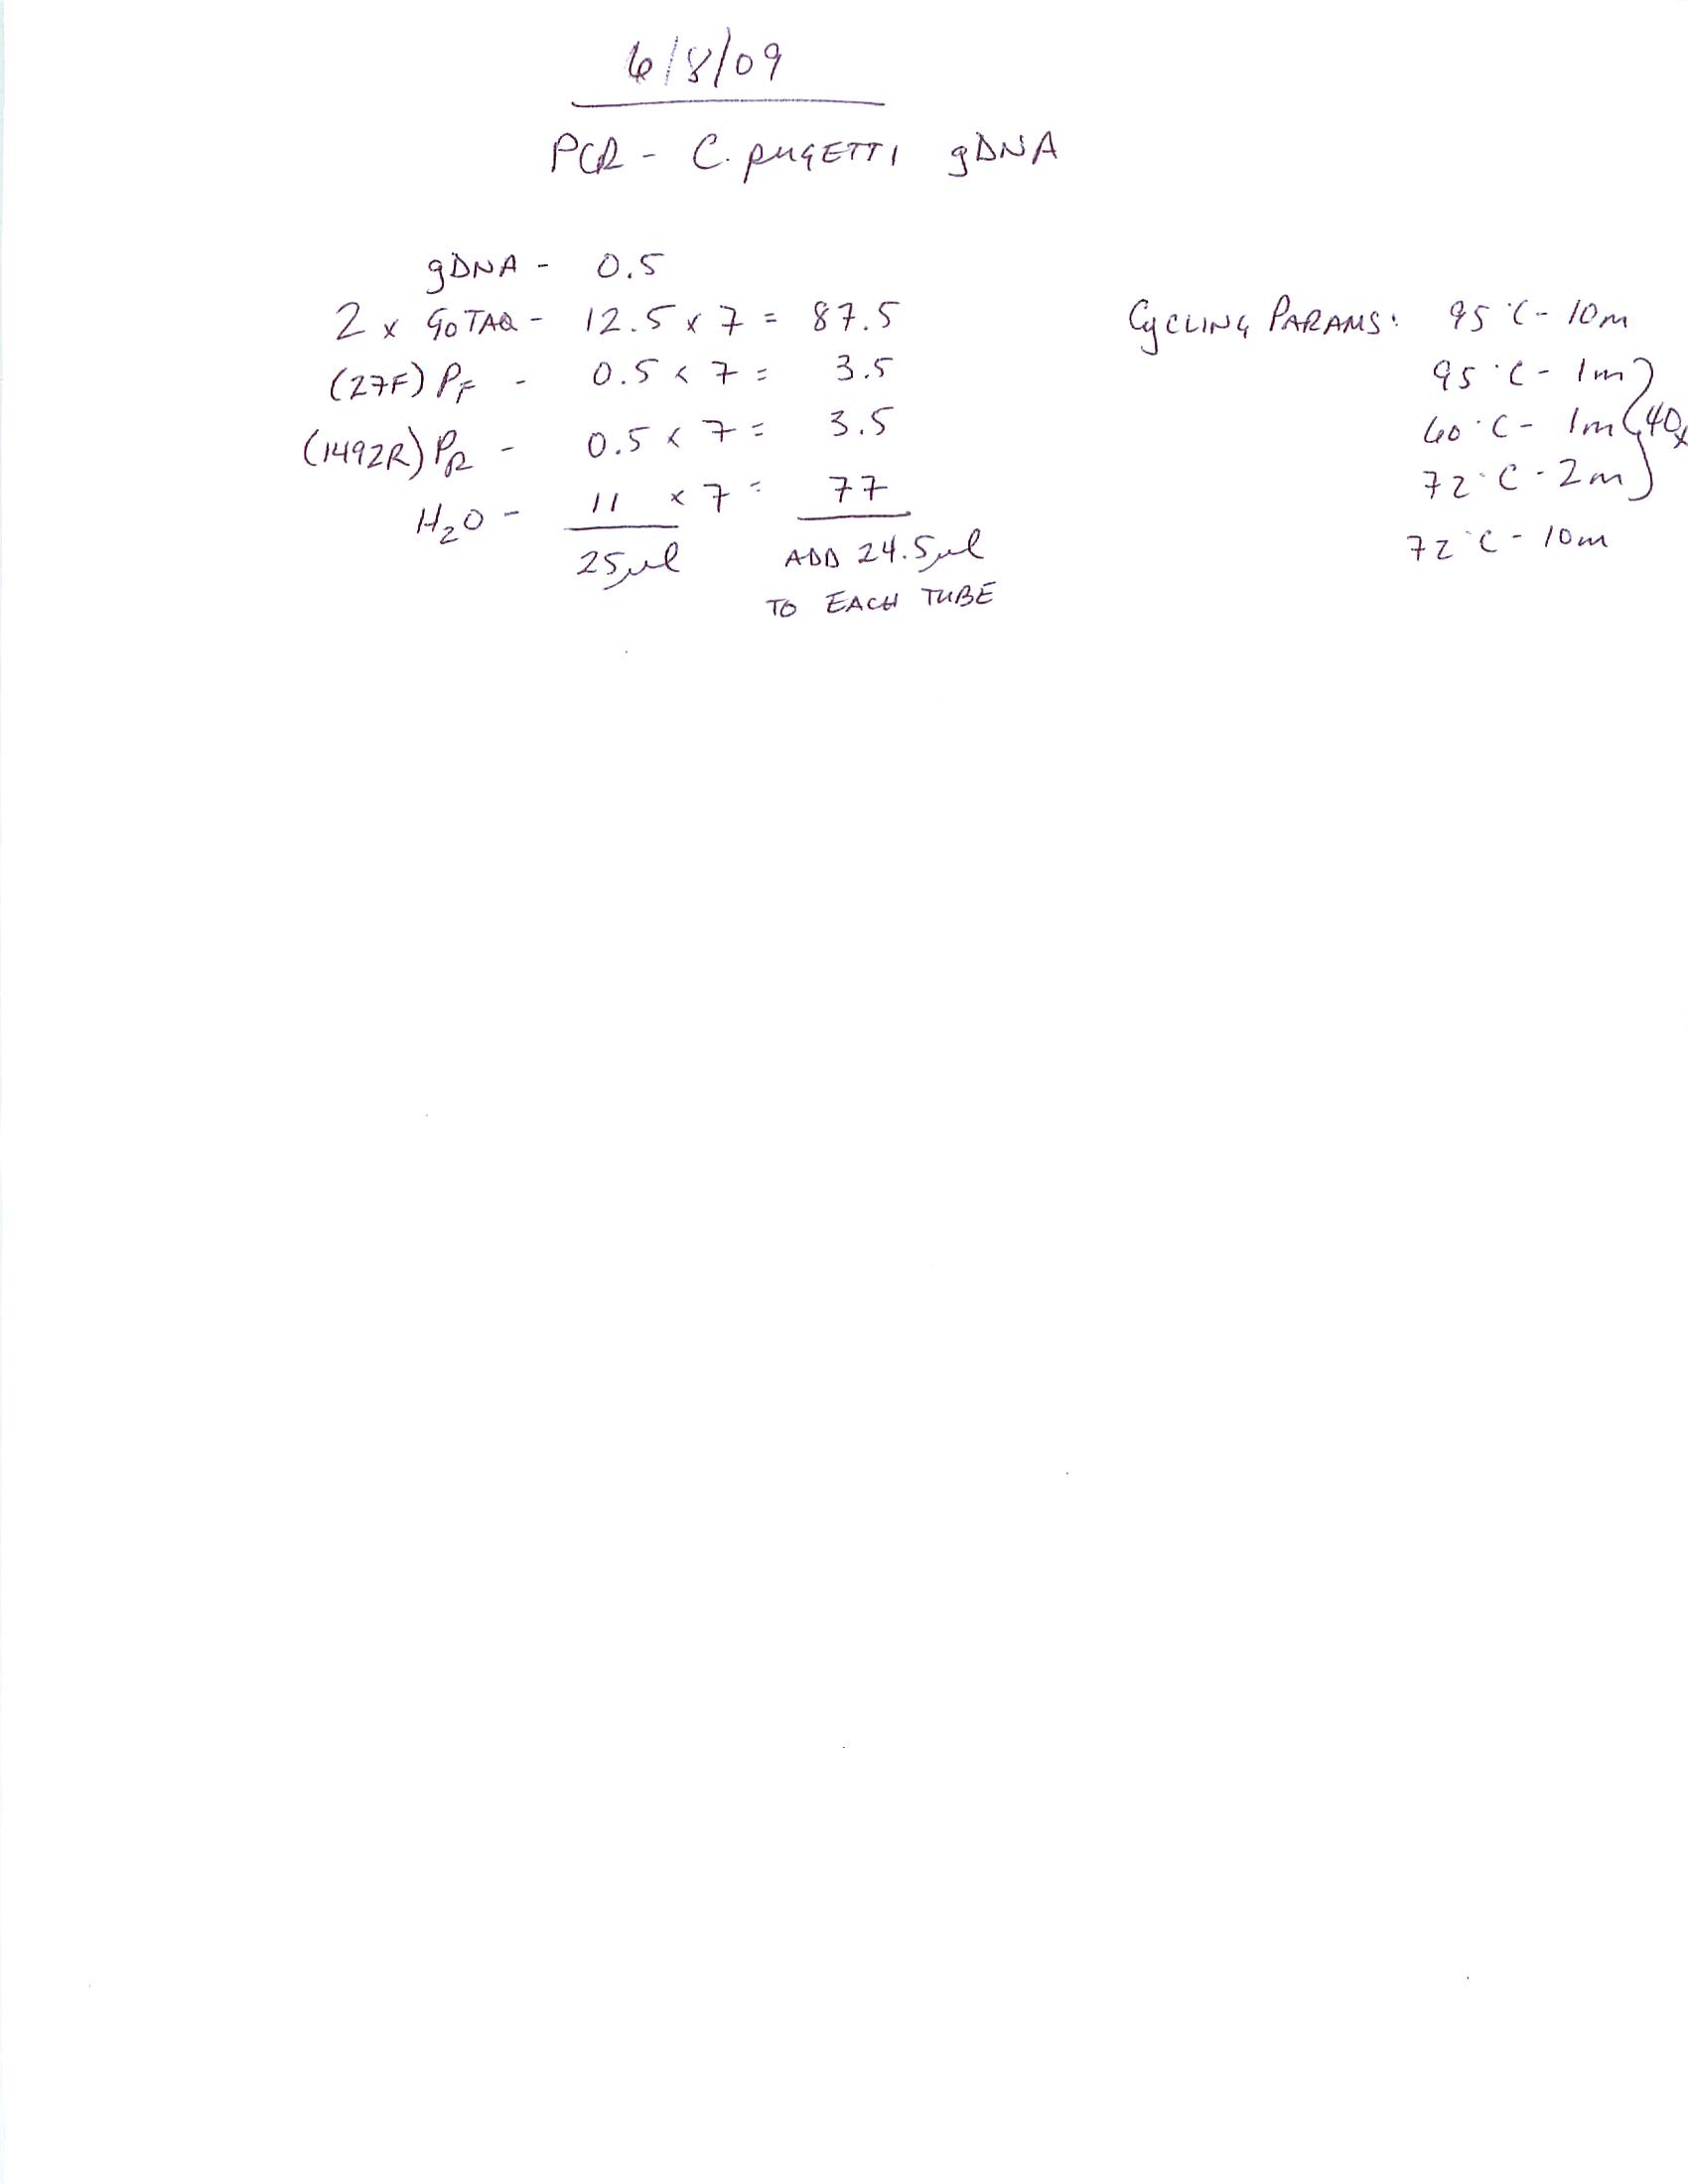 6/8/09
PCR - C. pugetti gDNA
gDNA - 0.5
2 x GoTAQ - 12.5 x 7 = 87.5
(27F) PF - 0.5 x 7 = 3.5
(1492R) PR - 0.5 x 7 = 3.5
H2O - 11 x 7 = 77
25µl ADD 24.5µl
TO EACH TUBE
CyCLING PARAMS: 95°C - 10m
95°C - 1m
60°C - 1m 40x
72°C - 2m
72°C - 10m